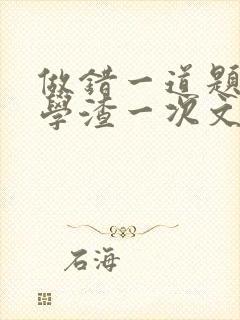 做錯一道題
學渣一次文
石海